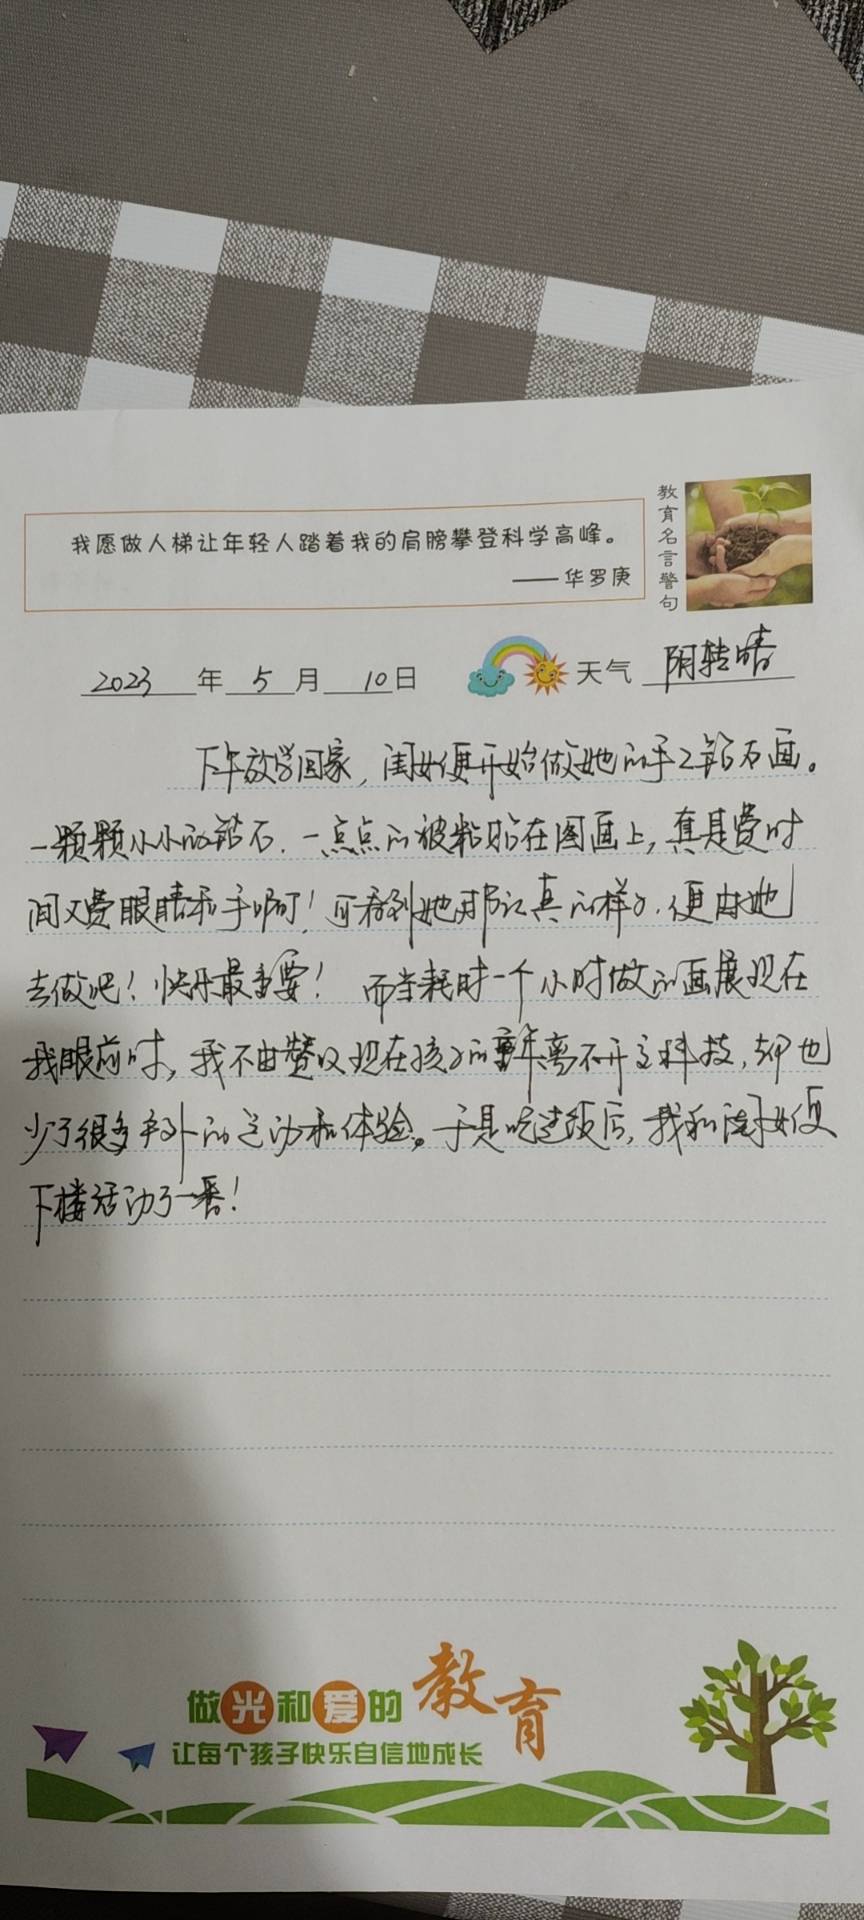 我愿做人梯让年轻人踏着我的肩膀攀登科学高峰。
——华罗庚
教育名言警句
2023年5月10日 天气 阴转晴
下午放学回家，闺女便开始做她的手工钻石画。
一颗颗小小的钻石，一点点的被粘贴在图画上，真是费时
间又费眼睛和手啊！可看到她那认真的样子，便由她
去做吧！快乐最重要！而当耗时一个小时做的画展现在
我眼前时，我不由赞叹现在孩子的童年离不开高科技，却也
少了很多户外的运动和体验。于是吃过饭后，我和闺女便
下楼活动了一番！
做光和爱的教育
让每个孩子快乐自信地成长